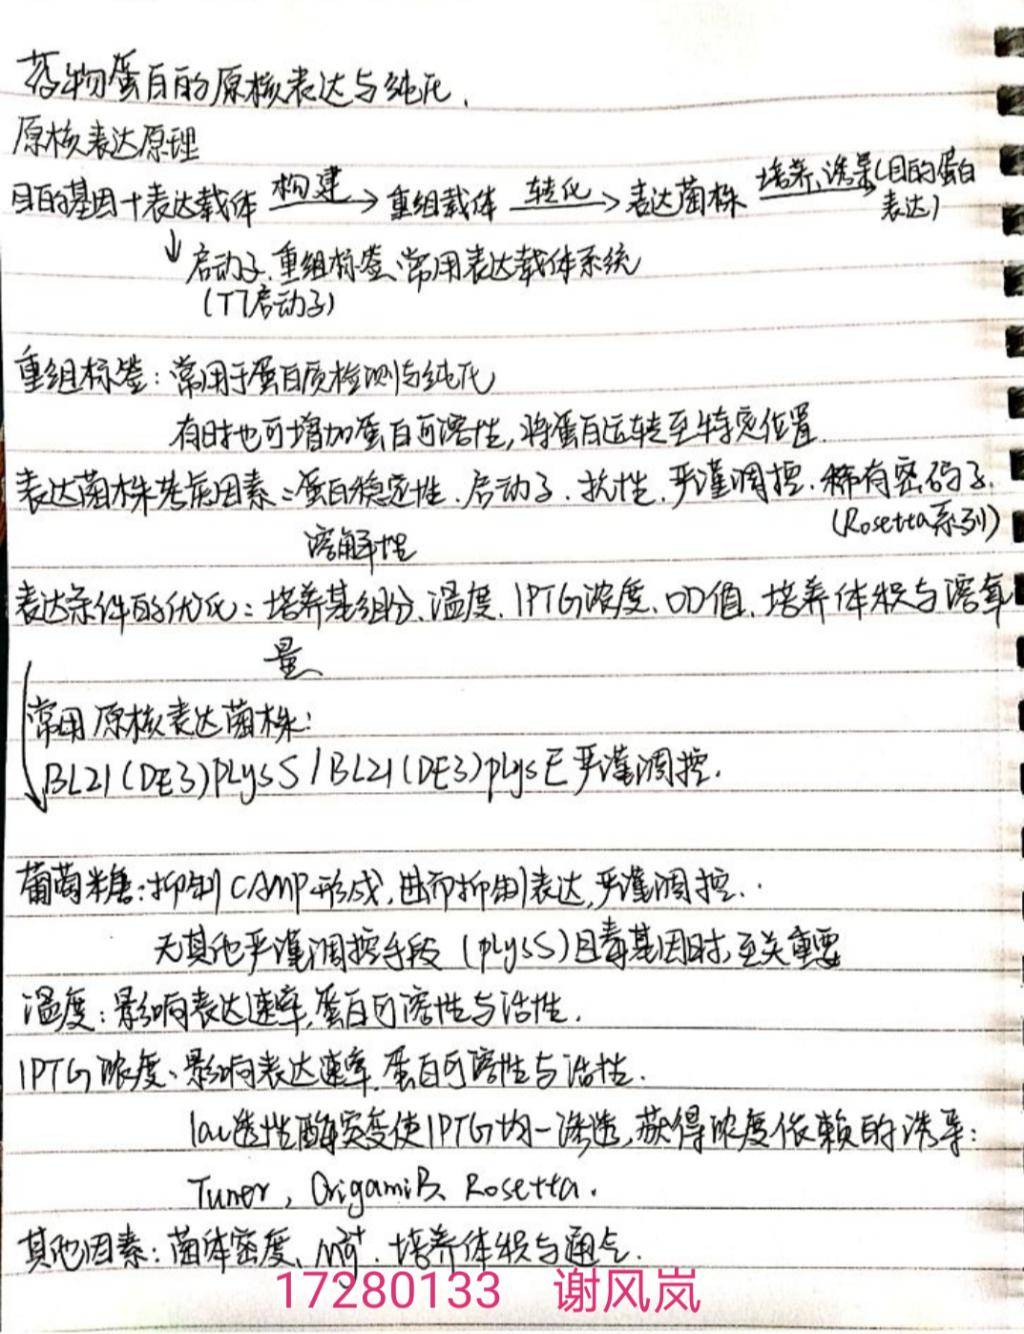 药物蛋白的原核表达与纯化.
原核表达原理
目的基因+表达载体 构建→ 重组载体 转化→ 表达菌株 培养、诱导(目的蛋白表达)
↓启动子、重组标签、常用表达载体系统
(T7启动子)
重组标签:常用于蛋白质检测与纯化
有时也可增加蛋白可溶性,将蛋白运转至特定位置.
表达菌株考虑因素:蛋白稳定性、启动子、抗性、严谨调控、稀有密码子.
(Rosetta系列)
溶解性
表达条件的优化:培养基组分、温度、IPTG浓度、OD值、培养体积与溶氧
量
常用原核表达菌株:
BL21(DE3)plysS/BL21(DE3)plysE严谨调控.
葡萄糖:抑制CAMP形成,进而抑制表达,严谨调控..
无其他严谨调控手段(plysS)且毒基因时,至关重要
温度:影响表达速率,蛋白可溶性与活性.
IPTG浓度:影响表达速率,蛋白可溶性与活性.
lac透性酶突变使IPTG均一渗透,获得浓度依赖的诱导:
Tuner, OrigamiB、Rosetta.
其他因素:菌体密度、Mg²⁺、培养体积与通气.
17280133 谢风岚